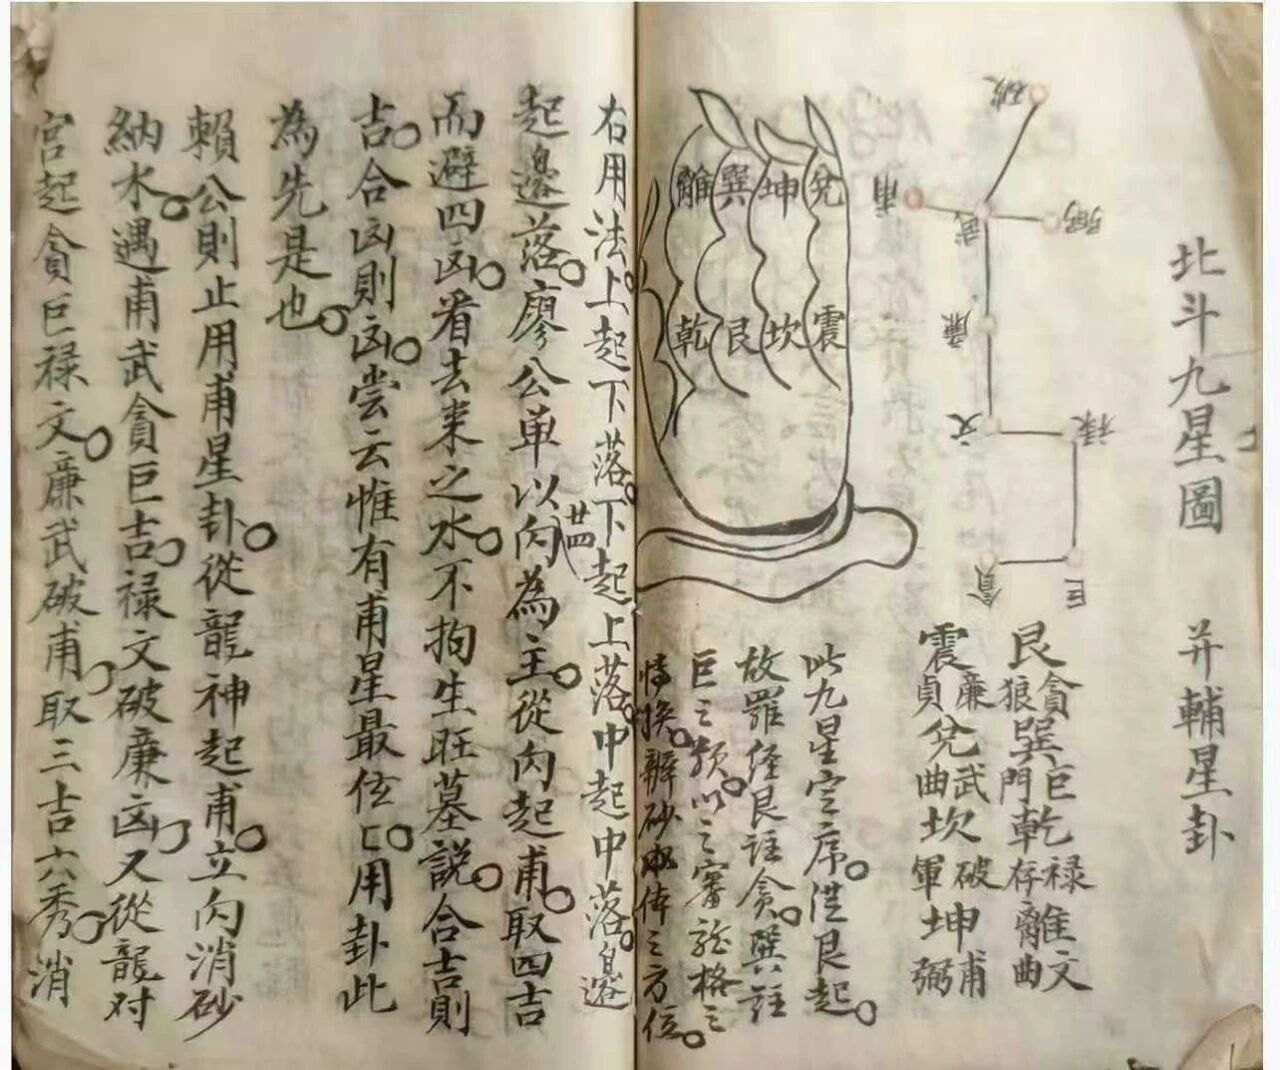 北斗九星圖 并輔星卦
破
甫
武
弼
廉
文
禄
貪
巨
艮貪狼巽巨門乾禄存離文曲
震廉貞兌武曲坎破軍坤甫弼
兌
坤
巽
離
震
坎
艮
乾
此九星定席從艮起
故羅经艮註貪巽註
巨之類以之審龍格之
特换辦砂水侓之方位
右用法上起下落下起上落中起中落邉
起邉落廖公单以向為主從向起甫取四吉
廿四
而避四凶看去来之水不拘生旺墓説合吉則
吉合凶則凶尝云惟有甫星最位匚用卦此
為先是也
賴公則止用甫星卦從龍神起甫立向消砂
納水遇甫武貪巨吉禄文破廉凶又從龍对
宫起貪巨禄文廉武破甫取三吉六秀消